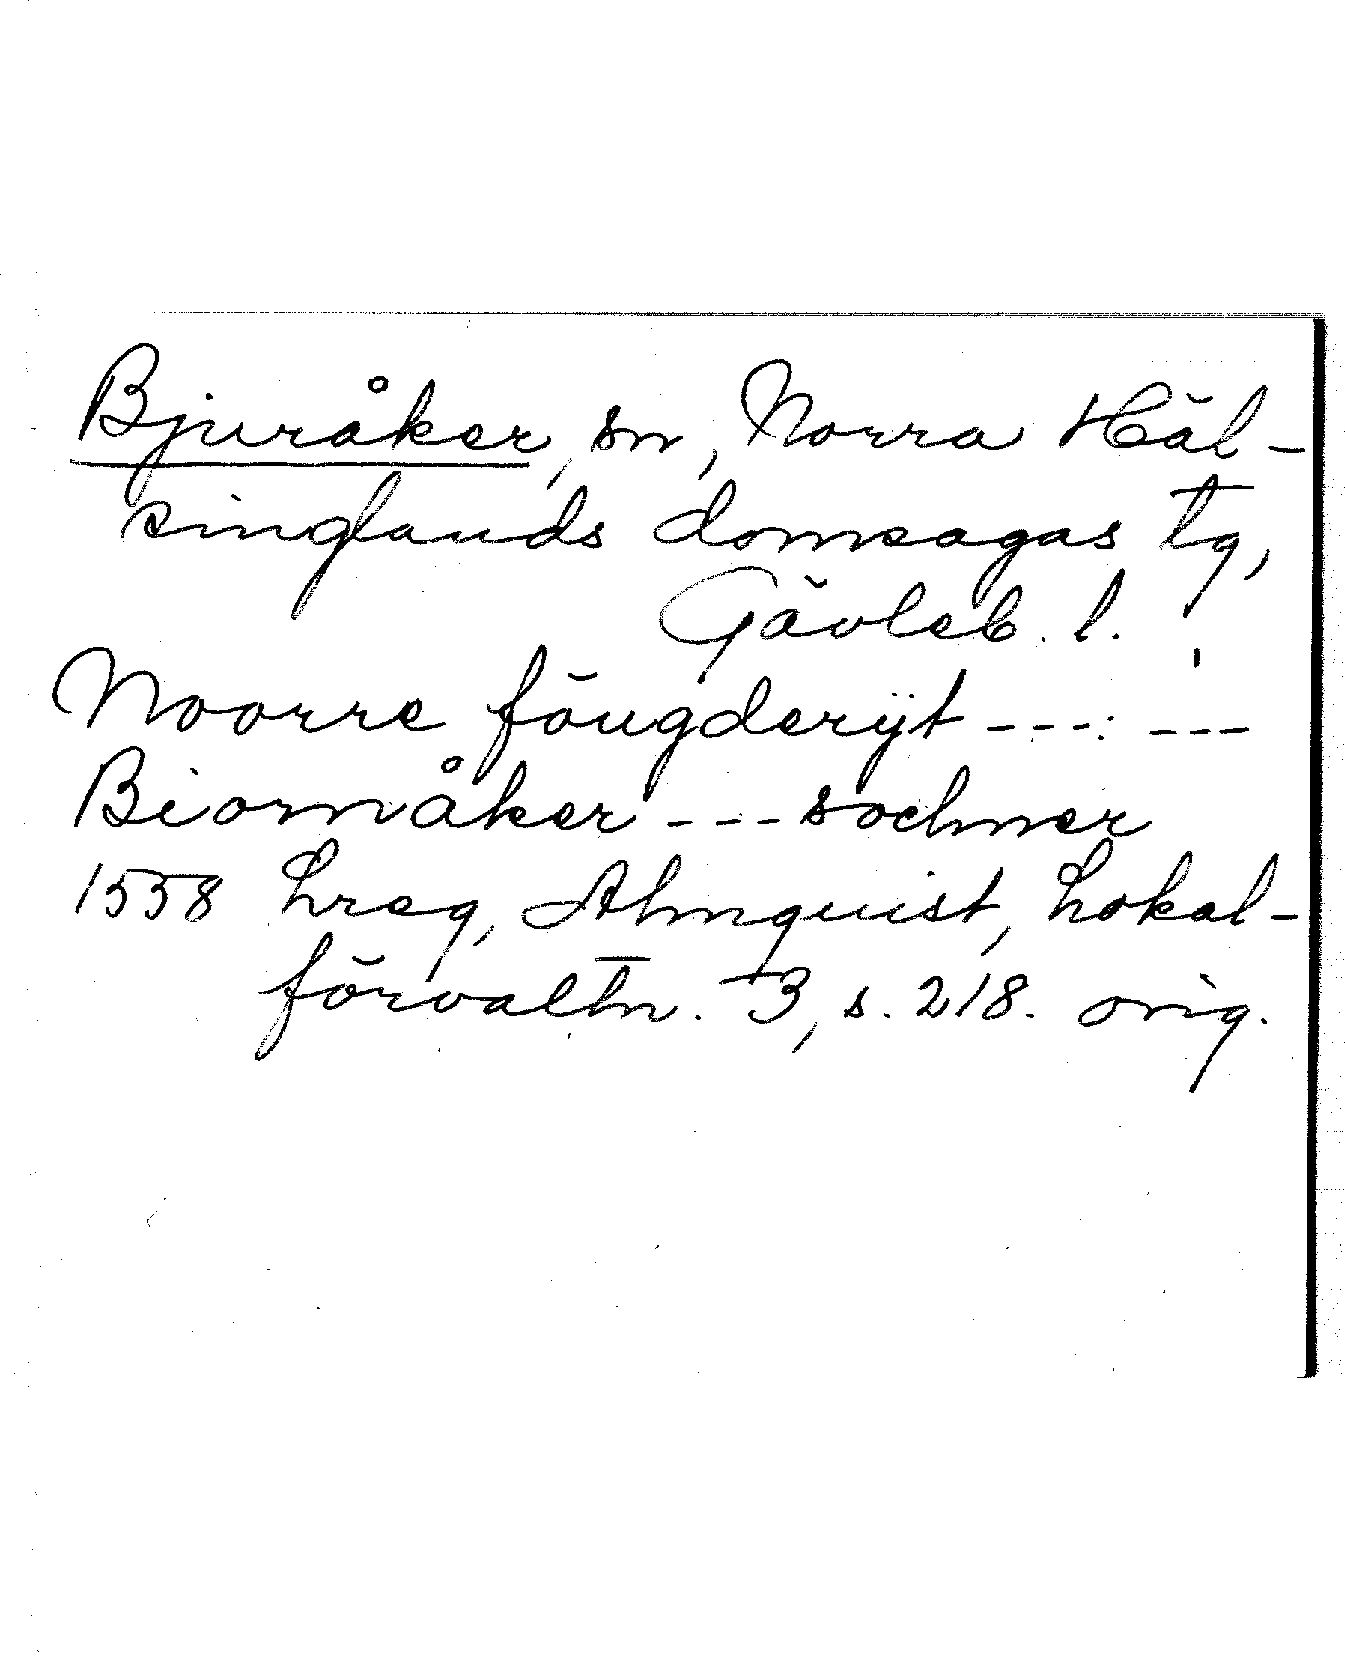 Bjuråker, sn, Norra Häl-
singlands domsagas tg,
Gävleb. l.
Noorre föugderÿt ---: ---
Biornåker --- sochner
1558 Lreg, Almquist, Lokal-
förvaltn. 3, s. 218. orig.